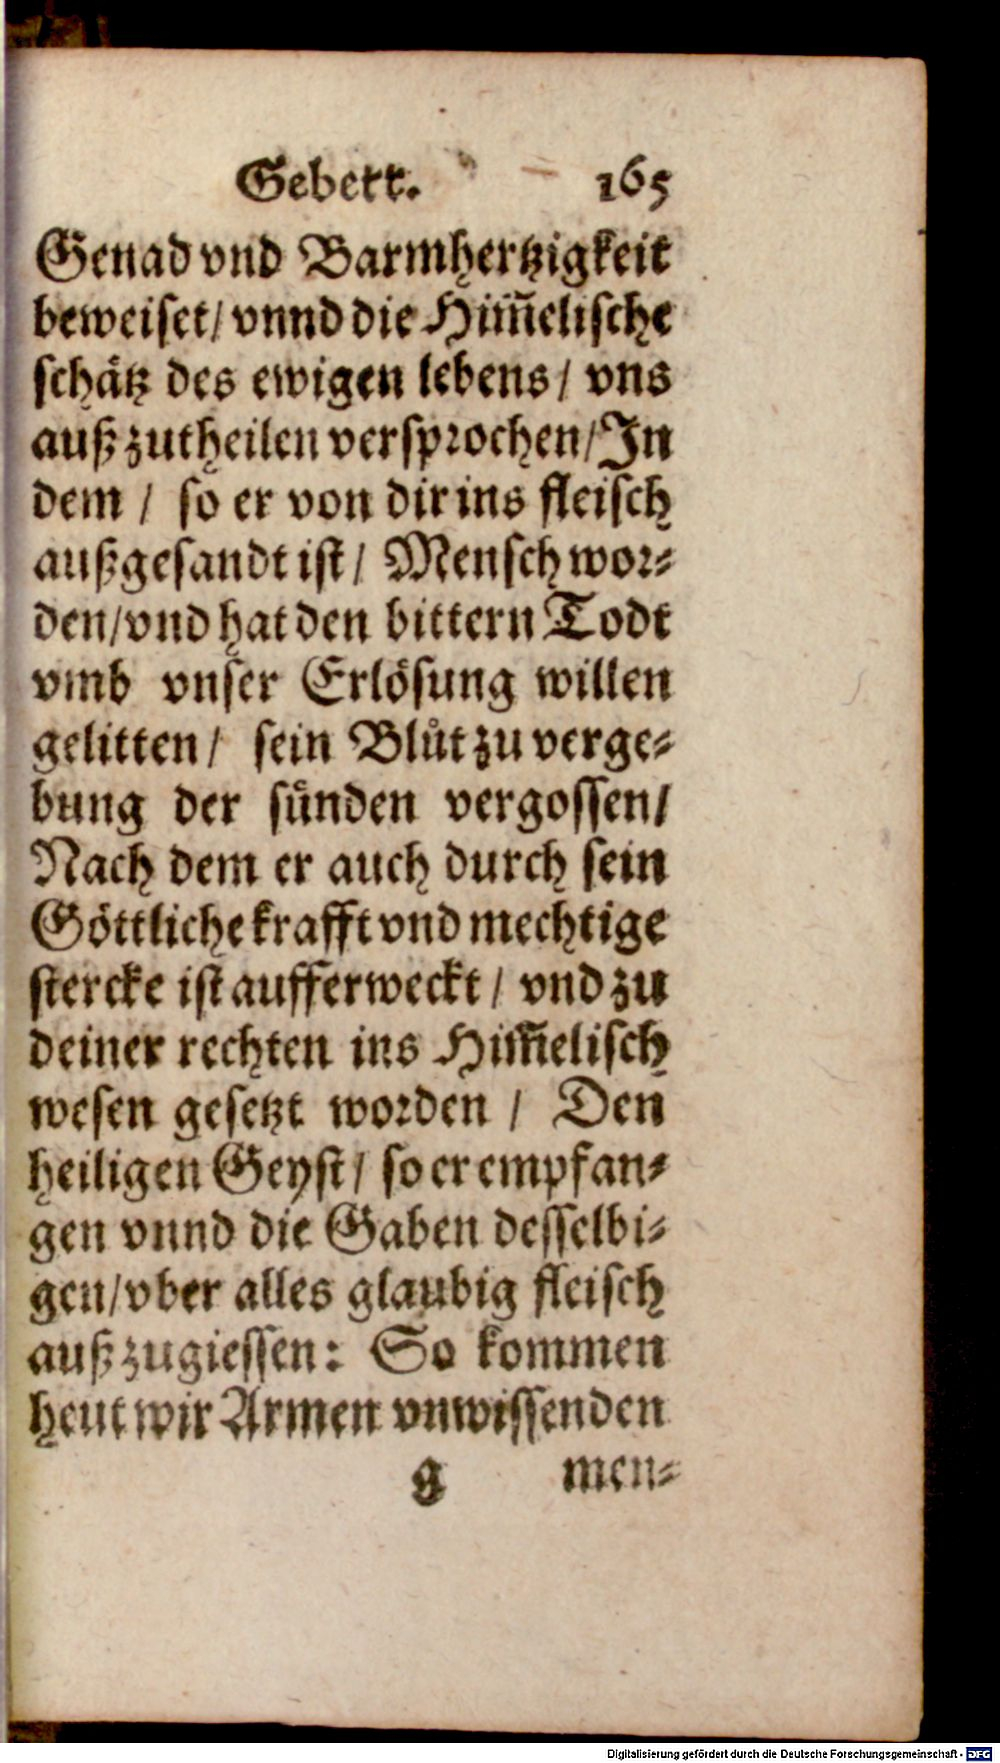 Gebett. 165
Genad vnd Barmhertzigkeit
beweiset/ vnnd die Him̃elische
schätz des ewigen lebens/ vns
auß zutheilen versprochen/ In
dem / so er von dir ins fleisch
außgesandt ist/ Mensch wor⸗
den/ vnd hat den bittern Todt
vmb vnser Erlösung willen
gelitten/ sein Blůt zu verge⸗
bung der sünden vergossen/
Nach dem er auch durch sein
Göttliche krafft vnd mechtige
stercke ist aufferweckt / vnd zu
deiner rechten ins Him̃elisch
wesen gesetzt worden / Den
heiligen Geyst/ so er empfan⸗
gen vnnd die Gaben desselbi⸗
gen/ vber alles glaubig fleisch
auß zugiessen: So kommen
heut wir Armen vnwissenden
g men⸗
Digitalisierung gefördert durch die Deutsche Forschungsgemeinschaft - DFG